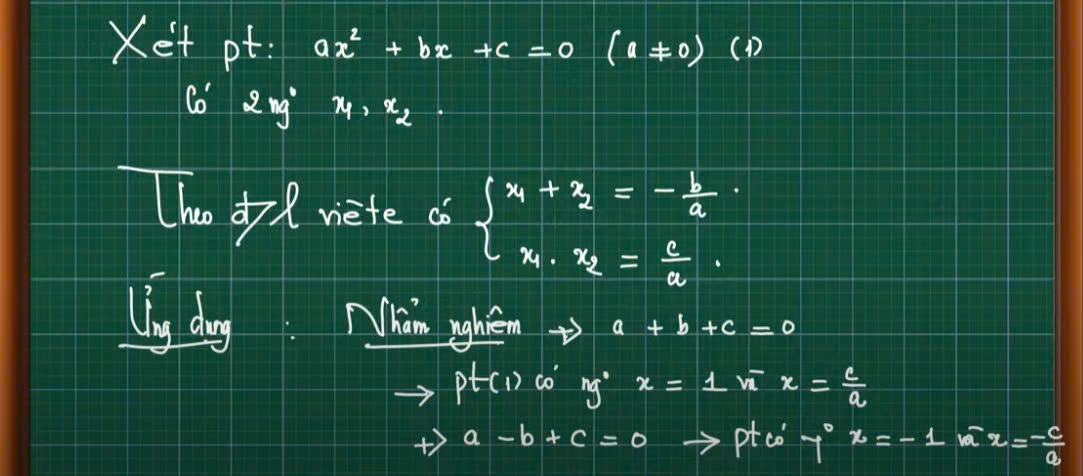 Xét pt: ax² + bx + c = 0 (a ≠ 0) (1)
Có 2 ng° x₁, x₂.
Theo đ/l viète có { x₁ + x₂ = - b/a.
x₁. x₂ = c/a.
Ứng dụng : Nhẩm nghiệm +> a + b + c = 0
→ pt(1) có ng° x = 1 và x = c/a
+> a - b + c = 0 → pt có n° x = -1 và x = -c/a